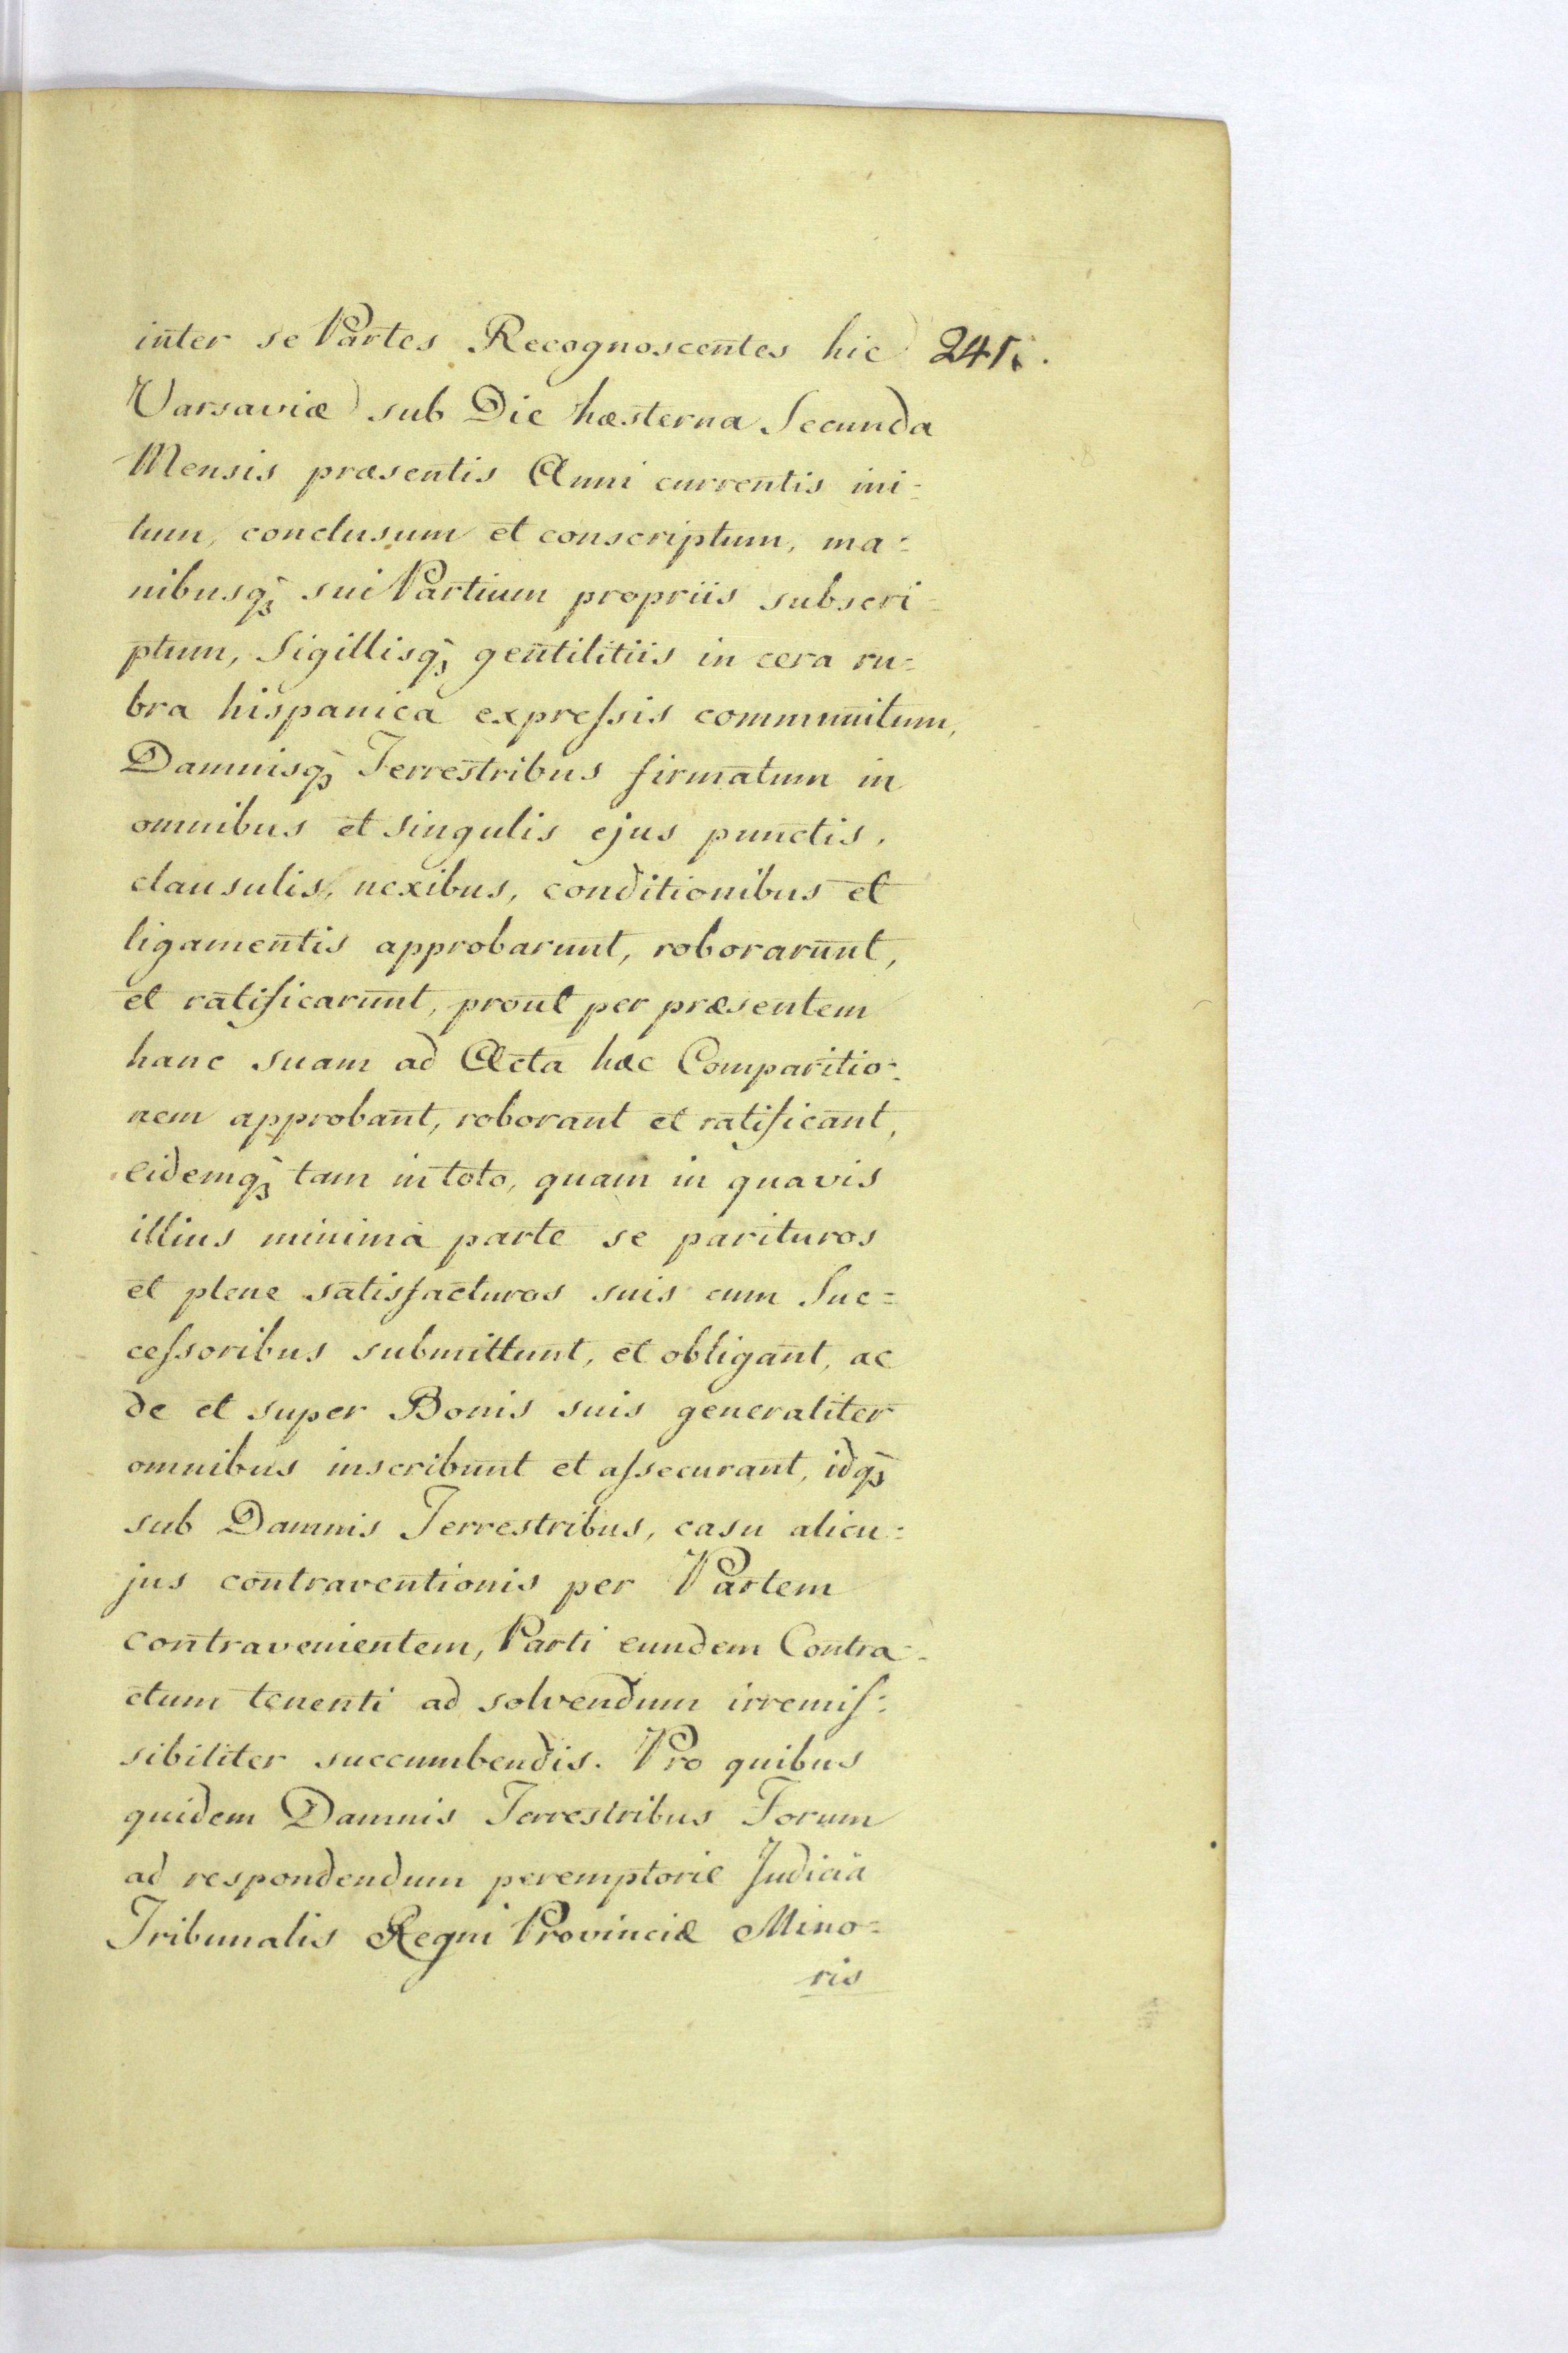 inter se Partes Recognoscentes hic 241.
Varsaviæ sub Die hæsterna Secunda
Mensis præsentis Anni currentis ini=
tum, conclusum et conscriptum, ma=
nibusq; sui Partium propriis subscri=
ptum, Sigillisq; gentilitiis in cera ru=
bra hispanica expreſsis communitum,
Damnisq; Terrestribus firmatum in
omnibus et singulis ejus punctis,
clausulis, nexibus, conditionibus et
ligamentis approbarunt, roborarunt,
et ratificarunt, prout per præsentem
hanc suam ad Acta hæc Comparitio=
nem approbant, roborant et ratificant,
eidemq; tam in toto, quam in quavis
illius minima parte se parituros
et plene satisfacturos suis cum Suc=
ceſsoribus submittunt, et obligant, ac
de et super Bonis suis generaliter
omnibus inscribunt et aſsecurant, idq;
sub Damnis Terrestribus, casu alicu=
jus contraventionis per Partem
contravenientem, Parti eundem Contra=
ctum tenenti ad solvendum irremiſ=
sibiliter succumbendis. Pro quibus
quidem Damnis Terrestribus Forum
ad respondendum peremptorie Judicia
Tribunalis Regni Provinciæ Mino=
ris